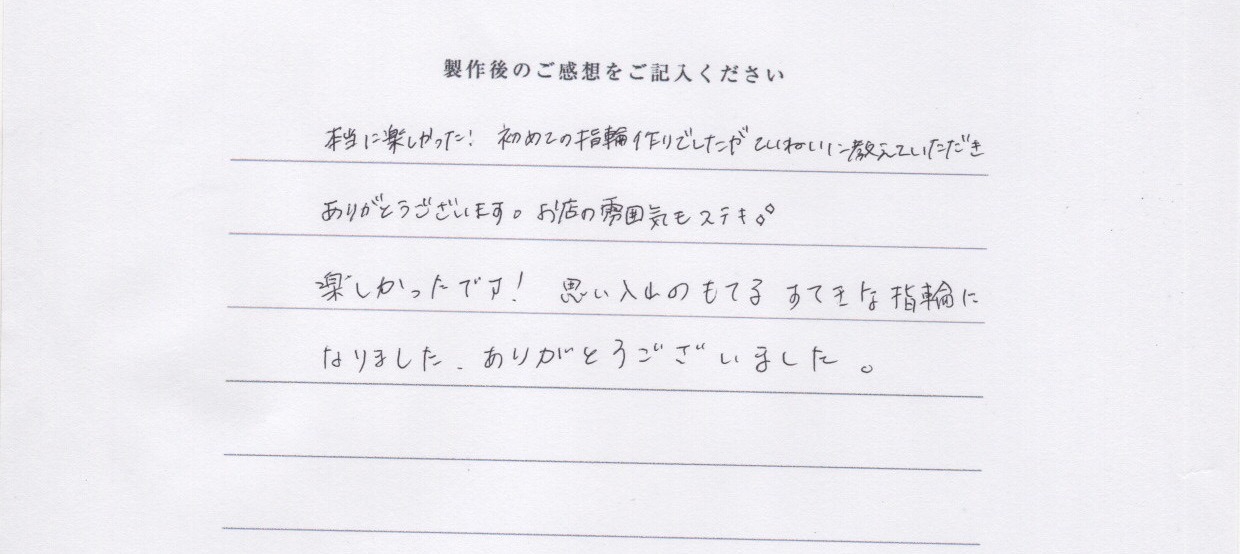 製作後のご感想をご記入ください
本当に楽しかった! 初めての指輪作りでしたが ていねいに教えていただき
ありがとうございます。お店の雰囲気もステキ。
楽しかったです! 思い入れのもてる すてきな指輪に
なりました. ありがとうございました。